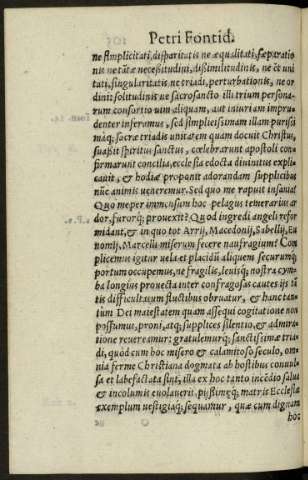 Petri Fontid.
ne simplicitati, disparitatis ne æqualitati, sæparatio
nis ne tātæ necessitudini, dissimilitudinis, ne ēt uni
tati, singularitatis ne triadi, perturbationis, ne or
dini: solitudinis ue sacrosancto illi trium persona-
rum consortio uim aliquam, aut iniuriam impru-
denter inferamus, sed simplicissimam illam purissi
māq; sacræ triadis unitatem quam docuit Christus,
suasit spiritus sanctus, cœlebrarunt apostoli con-
firmarunt concilia, ecclesia edocta diuinitus expli
cauit, & hodiæ proponit adorandam supplicibus
nūc animis ueneremur. Sed quo me rapuit insania?
Quo me per immensum hoc pelagus temerarius ar
dor, furorq; prouexit? Quod ingredi angeli refor
midant, & in quo tot Arrij, Macedonij, Sabellij, Eu
nomij, Marcelli miserum fecere naufragium? Com
plicemus igitur uela et placidū aliquem securumq;
portum occupemus, ne fragilis, leuisq; nostra cym-
ba longius prouecta inter confragosas cautes ijs tā
tis difficultatum fluctibus obruatur, & hanc tan-
tum Dei maiestatem quam assequi cogitatione non
possumus, proni, atq; supplices silentio, & admira-
tione reuereamur: gratulemurq; sanctissimæ tria-
di, quòd cum hoc misero & calamitoso seculo, om-
nia ferme Christiana dogmata ab hostibus conuul-
sa et labefactata sint, illa ex hoc tanto incēdio salua
& incolumis euolauerit. pijssimęq; matris Ecclesiæ
exemplum uestigiaq; sequamur, quæ cum dignam
hoc